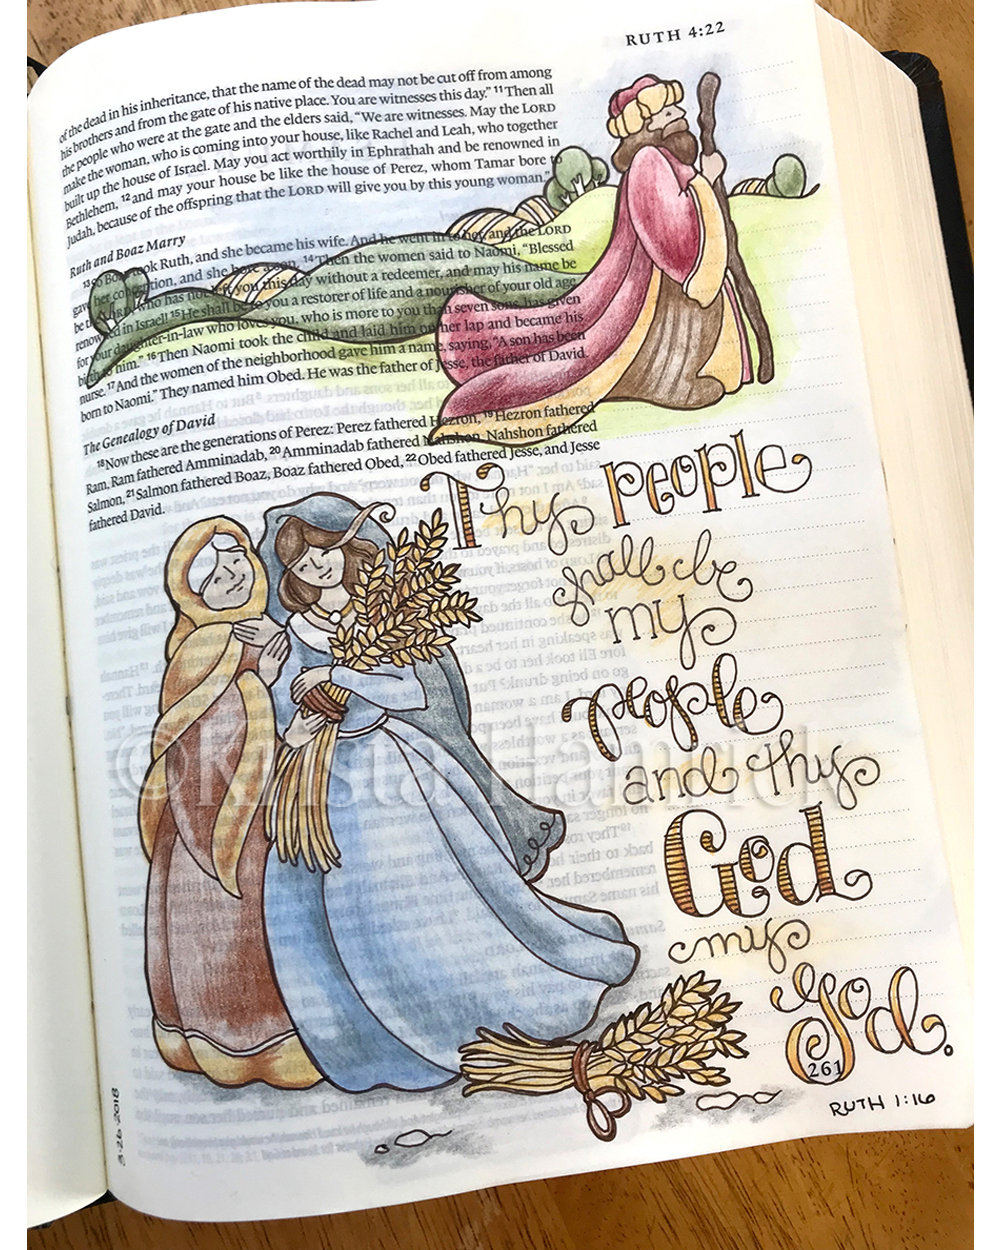 RUTH 4:22
of the dead in his inheritance, that the name of the dead may not be cut off from among
his brothers and from the gate of his native place. You are witnesses this day.” 11 Then all
the people who were at the gate and the elders said, “We are witnesses. May the LORD
make the woman, who is coming into your house, like Rachel and Leah, who together
built up the house of Israel. May you act worthily in Ephrathah and be renowned in
Bethlehem, 12 and may your house be like the house of Perez, whom Tamar bore to
Judah, because of the offspring that the LORD will give you by this young woman.”
Ruth and Boaz Marry
13 So Boaz took Ruth, and she became his wife. And he went in to her, and the LORD
gave her conception, and she bore a son. 14 Then the women said to Naomi, “Blessed
be the LORD, who has not left you this day without a redeemer, and may his name be
renowned in Israel! 15 He shall be to you a restorer of life and a nourisher of your old age,
for your daughter-in-law who loves you, who is more to you than seven sons, has given
birth to him.” 16 Then Naomi took the child and laid him on her lap and became his
nurse. 17 And the women of the neighborhood gave him a name, saying, “A son has been
born to Naomi.” They named him Obed. He was the father of Jesse, the father of David.
The Genealogy of David
18 Now these are the generations of Perez: Perez fathered Hezron, 19 Hezron fathered
Ram, Ram fathered Amminadab, 20 Amminadab fathered Nahshon, Nahshon fathered
Salmon, 21 Salmon fathered Boaz, Boaz fathered Obed, 22 Obed fathered Jesse, and Jesse
fathered David.
Thy people
shall be
my
people
and thy
God
my
God.
261
RUTH 1:16
8-26-2018
©Krista Hamrick